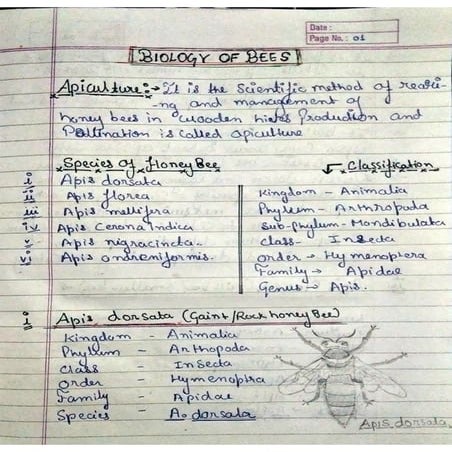 Date :
Page No. : 01
BIOLOGY OF BEES
Apiculture :→ It is the Scientific method of reari-
-ng and management of
honey bees in wooden hives Production and
Pollination is called apiculture
Species of Honey Bee
i Apis dorsata
ii Apis florea
iii Apis mellifera
iv Apis Cerona Indica
v Apis nigracincta-
vi Apis andreniformis.
Classification
Kingdom - Animalia
Phylum - Arthropoda
Sub-phylum - Mandibulata
class - Insecta
Order → Hymenoptera
Family → Apidae
Genus → Apis.
i Apis dorsata (Gaint/Rock honey Bee)
Kingdom - Animalia
Phylum - Arthopoda
Class - Insecta
Order - Hymenoptra
Family - Apidae
Species - A. dorsata
Apis dorsata